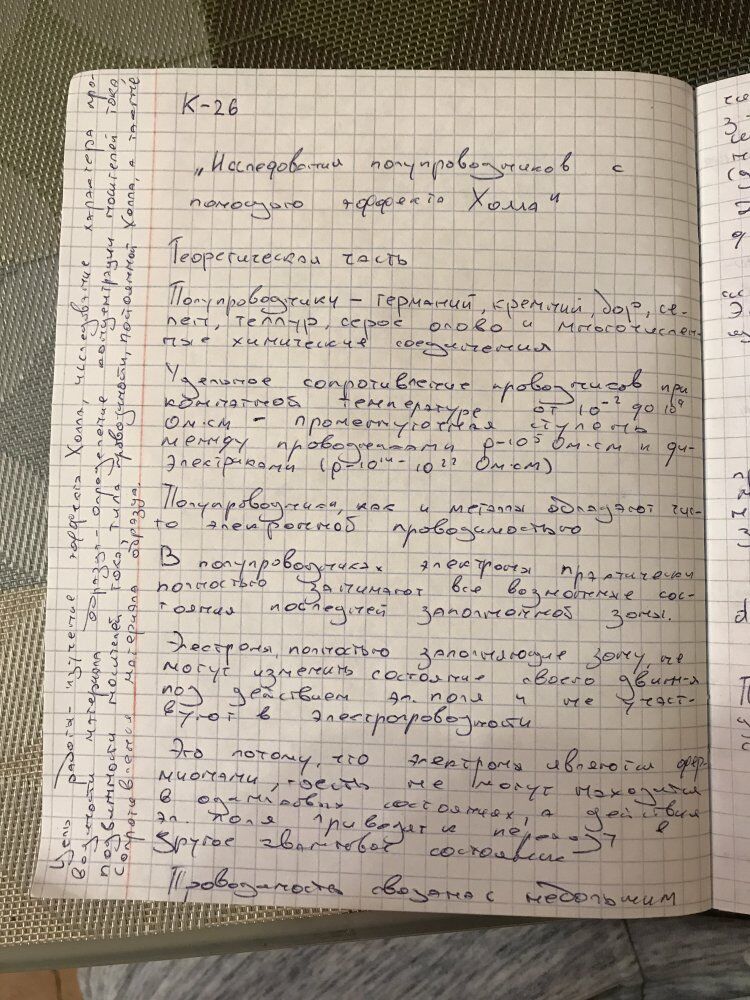 К-26
„Исследования полупроводников с
помощью эффекта Холла"
Теоретическая часть
Полупроводники – германий, кремний, бор, се-
лен, теллур, серое олово и многочислен-
ные химические соединения
Удельное сопротивление проводников при
комнатной температуре от 10⁻² до 10⁹
Ом·см – промежуточная ступень
между проводниками ρ-10⁵ Ом·см и ди-
электриками (ρ-10¹⁴ - 10²² Ом·см)
Полупроводники, как и металлы обладают чис-
то электронной проводимостью
В полупроводниках электроны практически
полностью занимают все возможные сос-
тояния последней заполненной зоны.
Электроны, полностью заполняющие зону, не
могут изменить состояние своего движ-я
под действием эл. поля и не участ-
вуют в электропроводности
Это потому, что электроны являются фер-
мионами, тоесть не могут находится
в одинаковых состояниях, а действия
эл. поля приводят к переходу в
другое квантовое состояние
Проводимость связана с небольшим
Цель работы - изучение эффекта Холла, исследование характера про-
водимости материала образца - определение концентрации носителей тока,
подвижности носителей тока, типа проводимости, постоянной Холла, а также
сопротивления материала образца.